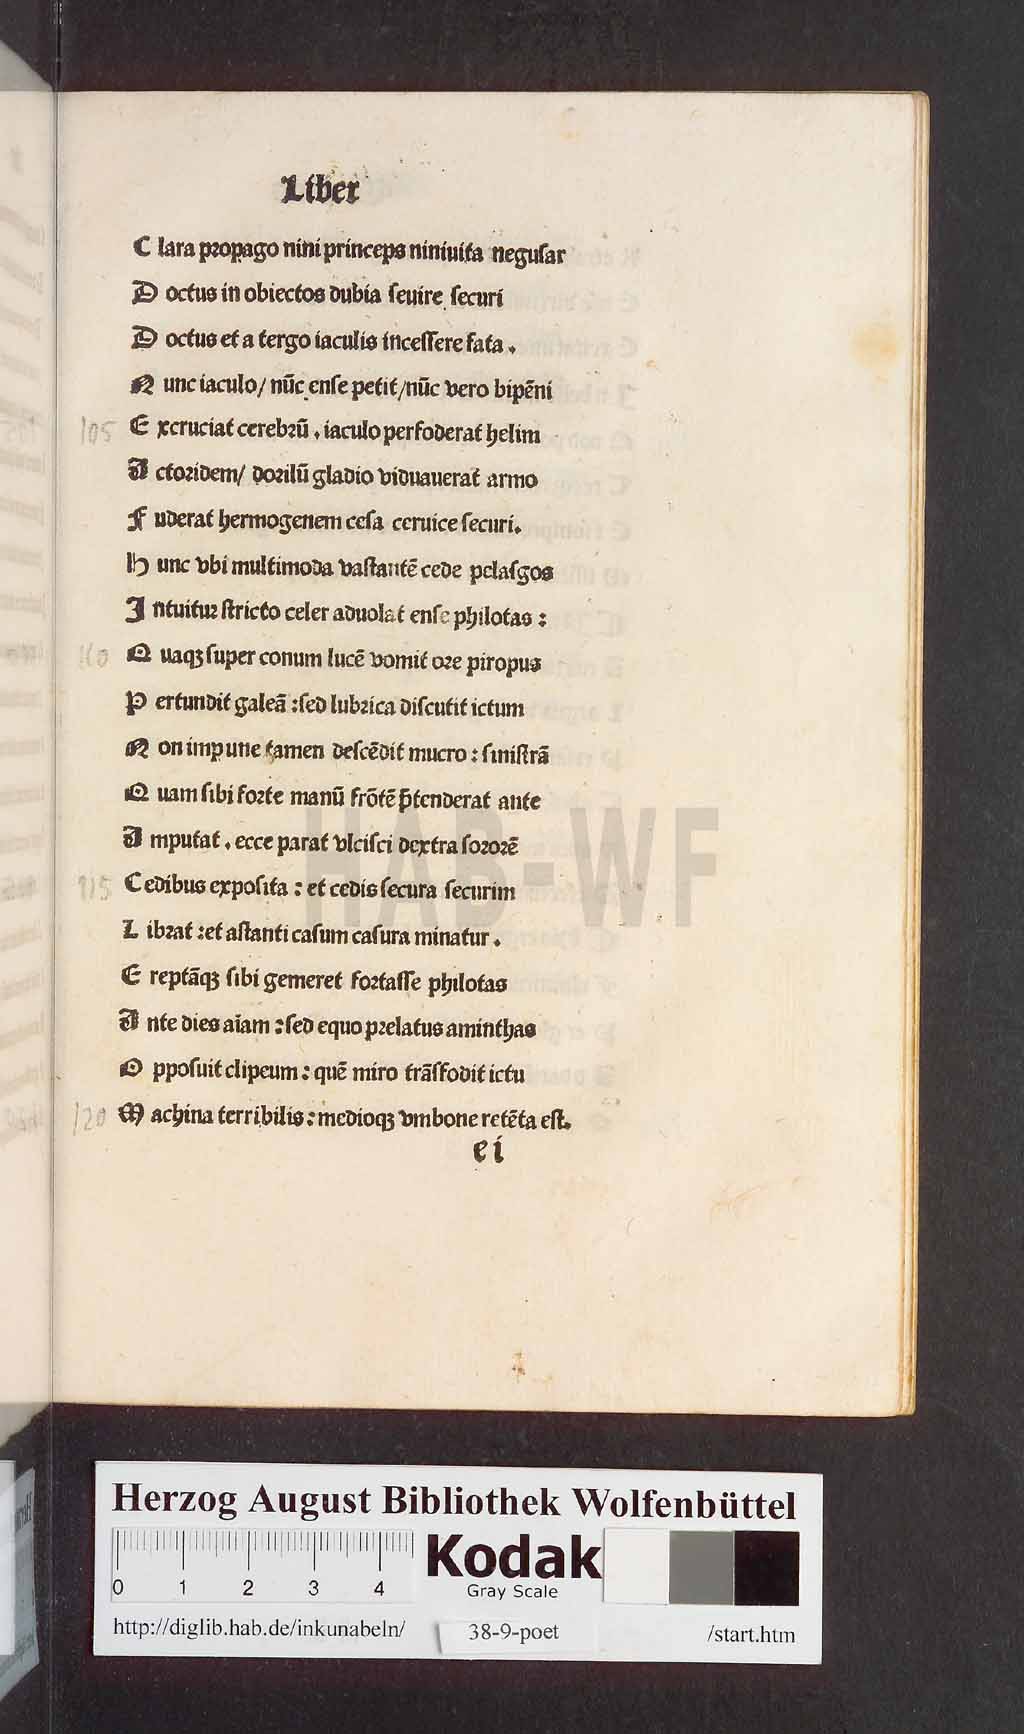 Liber
C lara propago nini princeps niniuita negusar
D octus in obiectos dubia seuire securi
D octus et a tergo iaculis incessere fata .
N unc iaculo/ nūc ense petit/nūc vero bipēni
105 E xcruciat cerebrū . iaculo perfoderat helim
A ctoridem/ dorilū gladio viduauerat armo
F uderat hermogenem cesa ceruice securi.
H unc vbi multimoda vastantē cede pelasgos
I ntuitur stricto celer aduolat ense philotas :
110 Q uaqꝫ super conum lucē vomit ore piropus
P ertundit galeā : sed lubrica discutit ictum
N on impune tamen descēdit mucro : sinistrā
Q uam sibi forte manū frōtē p̄tenderat ante
A mputat . ecce parat vlcisci dextra sororē
115 C edibus exposita : et cedis secura securim
L ibrat : et astanti casum casura minatur .
E reptāqꝫ sibi gemeret fortasse philotas
A nte dies aīam : sed equo prelatus aminthas
O pposuit clipeum : quē miro trāsfodit ictu
120 M achina terribilis : medioqꝫ vmbone retēta est.
e i
HAB-WF
Herzog August Bibliothek Wolfenbüttel
0 1 2 3 4
Kodak
Gray Scale
http://diglib.hab.de/inkunabeln/ 38-9-poet /start.htm